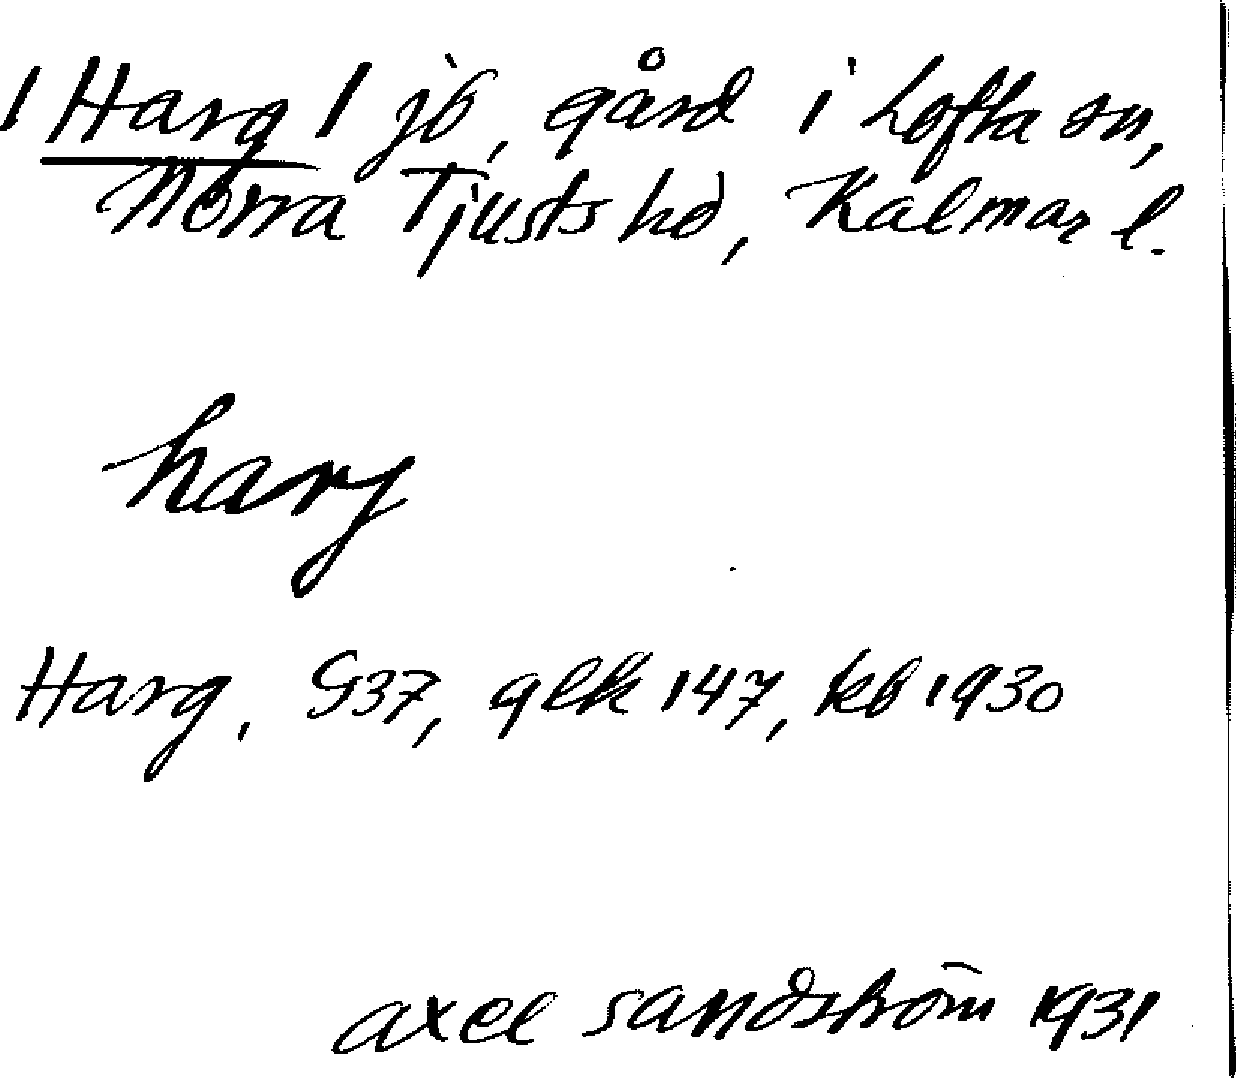 | Harg | jb, gård i Lofta sn,
Norra Tjusts hd, Kalmar l.
harj
Harg, G37, glk 147, kb 1930
axel sandström 1931